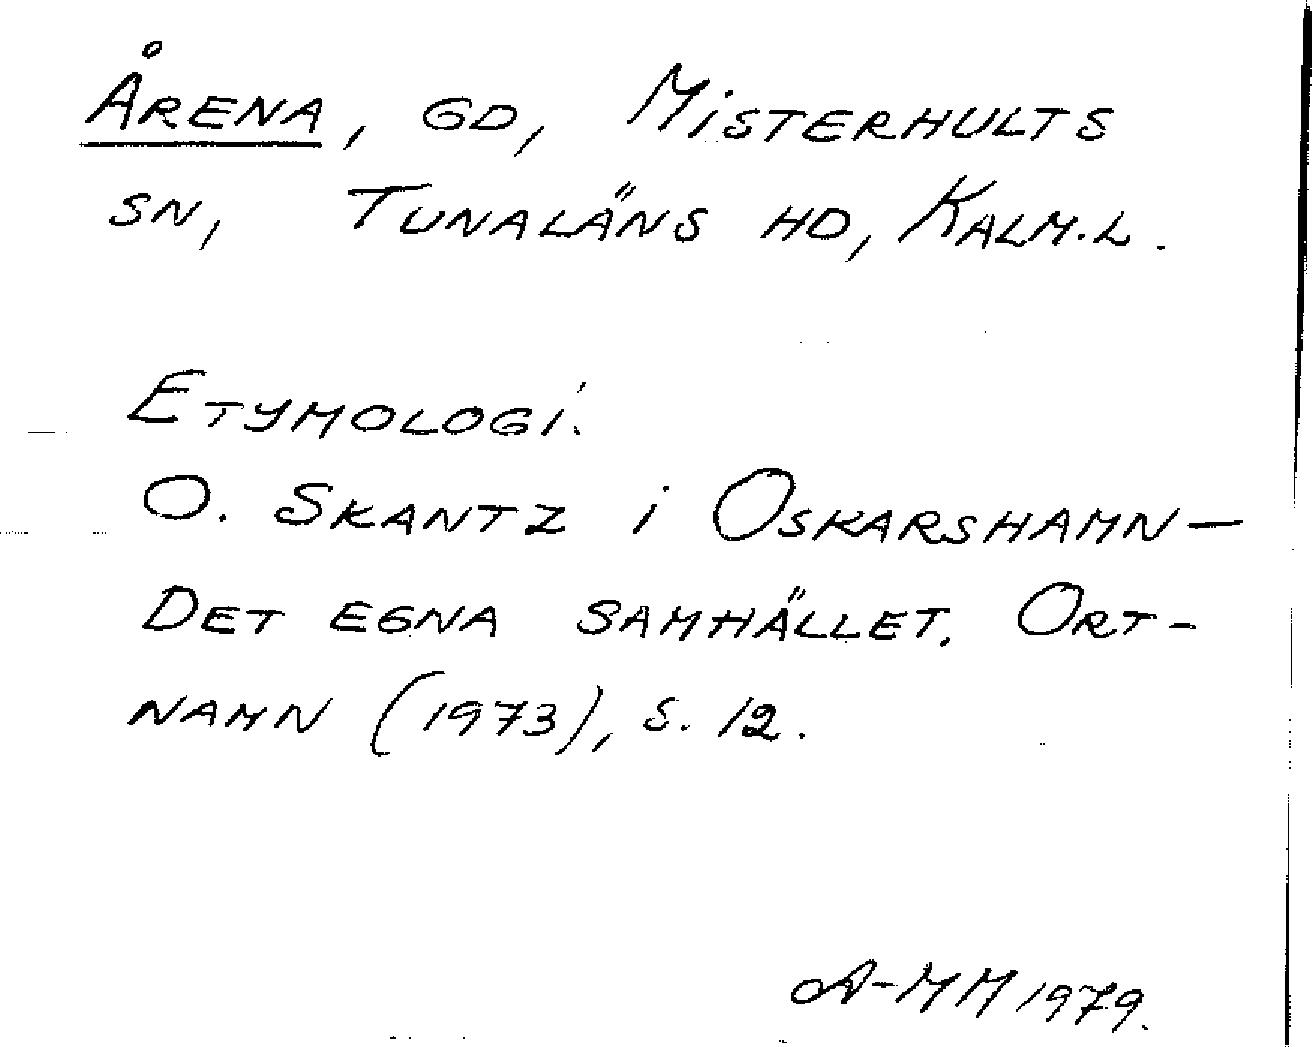 Årena, gd, Misterhults
sn, Tunaläns hd, Kalm.l.
Etymologi.
O. Skantz i Oskarshamn –
Det egna samhället. Ort-
namn (1973), s. 12.
A-MM 1979.